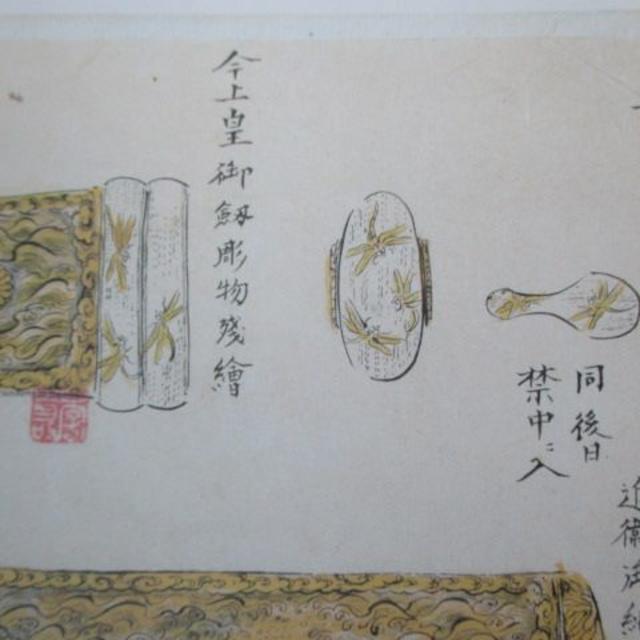 近衛
同後日
禁中ニ入
今上皇御釼彫物残繪